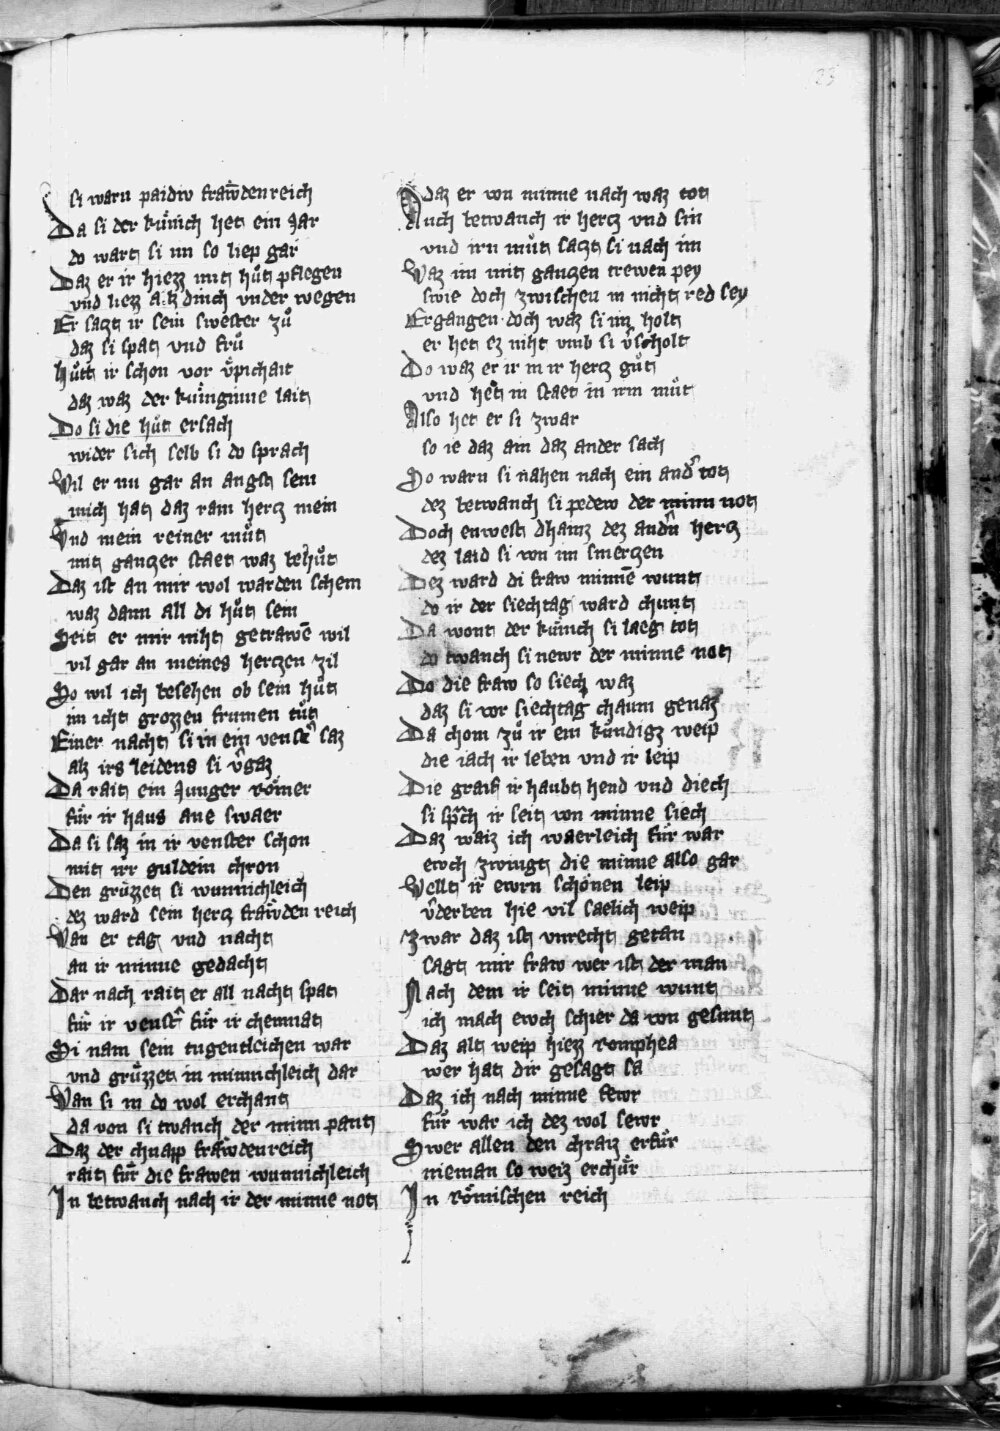 33
si warn paidiw fraw̄denreich
Da si der kuͤnich het ein Jar
do wart si im so liep gar
Daz er ir hiezz mit huͦt pflegen
vnd liezz alz dinch vnder wegen
Er satzt ir sein swester zuͦ
daz si spat vnd fruͤ
Huͦtt ir schon vor v̈pichait
daz waz der kuͤniginne lait
Do si die huͦt ersach
wider sich selb si do sprach
Wil er nu gar an angst sein
mich hat daz rain hertz mein
Vnd mein reiner muͦt
mit gantzer staet waz behuͦt
Daz ist an mir wol warden schein
waz dann all di huͦt sein
Seit er mir niht getrawē wil
vil gar an meines hertzen zil
So wil ich besehen ob sein huͦt
im icht grozzen frumen tuͦt
Einer nacht si in eim venst͛ saz
alz irs leidens si v͛gaz
Da rait ein Junger roͤmer
fuͤr ir haus ane swaer
Da si saz in ir venster schon
mit irr guldein chron
Den gruͤzzet si wunnichleich
dez ward sein hertz fraw̄denreich
Wan er tag vnd nacht
an ir minne gedacht
Dar nach rait er all nacht spat
fuͤr ir venst͛ fuͤr ir chemnat
Si nam sein tugentleichen war
vnd gruͤzzet in minnichleich dar
Wan si in do wol erchant
da von si twanch der minn pant
Daz der chnapp fraw̄denreich
rait fuͤr die frawen wunnichleich
In betwanch nach ir der minne not
Daz er von minne nach waz tot
Auch betwanch ir hertz vnd sin
vnd irn muͦt satzt si nach im
Waz im mit gantzen trewen pey
swie doch zwischen in nicht red sey
Ergangen doch waz si im holt
er het ez niht vmb si v͛scholt
Do waz er ir in ir hertz guͦt
vnd het in staet in irm muͦt
Also het er si zwar
so ie daz ain daz ander sach
So warn si nahen nach ein and͛ tot
dez betwanch si pedew der minn not
Doch enwest dhainz dez and͛n hertz
dez laid si von im smertzen
Dez ward di fraw minnē wunt
do ir der siechtag ward chunt
Da wont der kuͤnich si laeg tot
do twanch si newr der minne not
Do die fraw so siech waz
daz si vor siechtag chaum genaz
Da chom zuͦ ir ein kuͤndigz weip
die iach ir leben vnd ir leip
Die graif ir haubt hend vnd diech
si sp͛ch ir seit von minne siech
Daz waiz ich waerleich fuͤr war
ewch zwingt die minne also gar
Wellt ir ewrn schoͤnen leip
v͛derben hie vil saelich weip
Zwar daz ist vnrecht getan
sagt mir fraw wer ist der man
Nach dem ir seit minne wunt
ich mach ewch schier da von gesunt
Daz alt weip hiezz romphea
wer hat dir gesagt sa
Daz ich nach minne sewr
fuͤr war ich dez wol sewr
Swer allen den chraiz erfuͤr
nieman so weiz erchuͤr
In roͤmischen reich